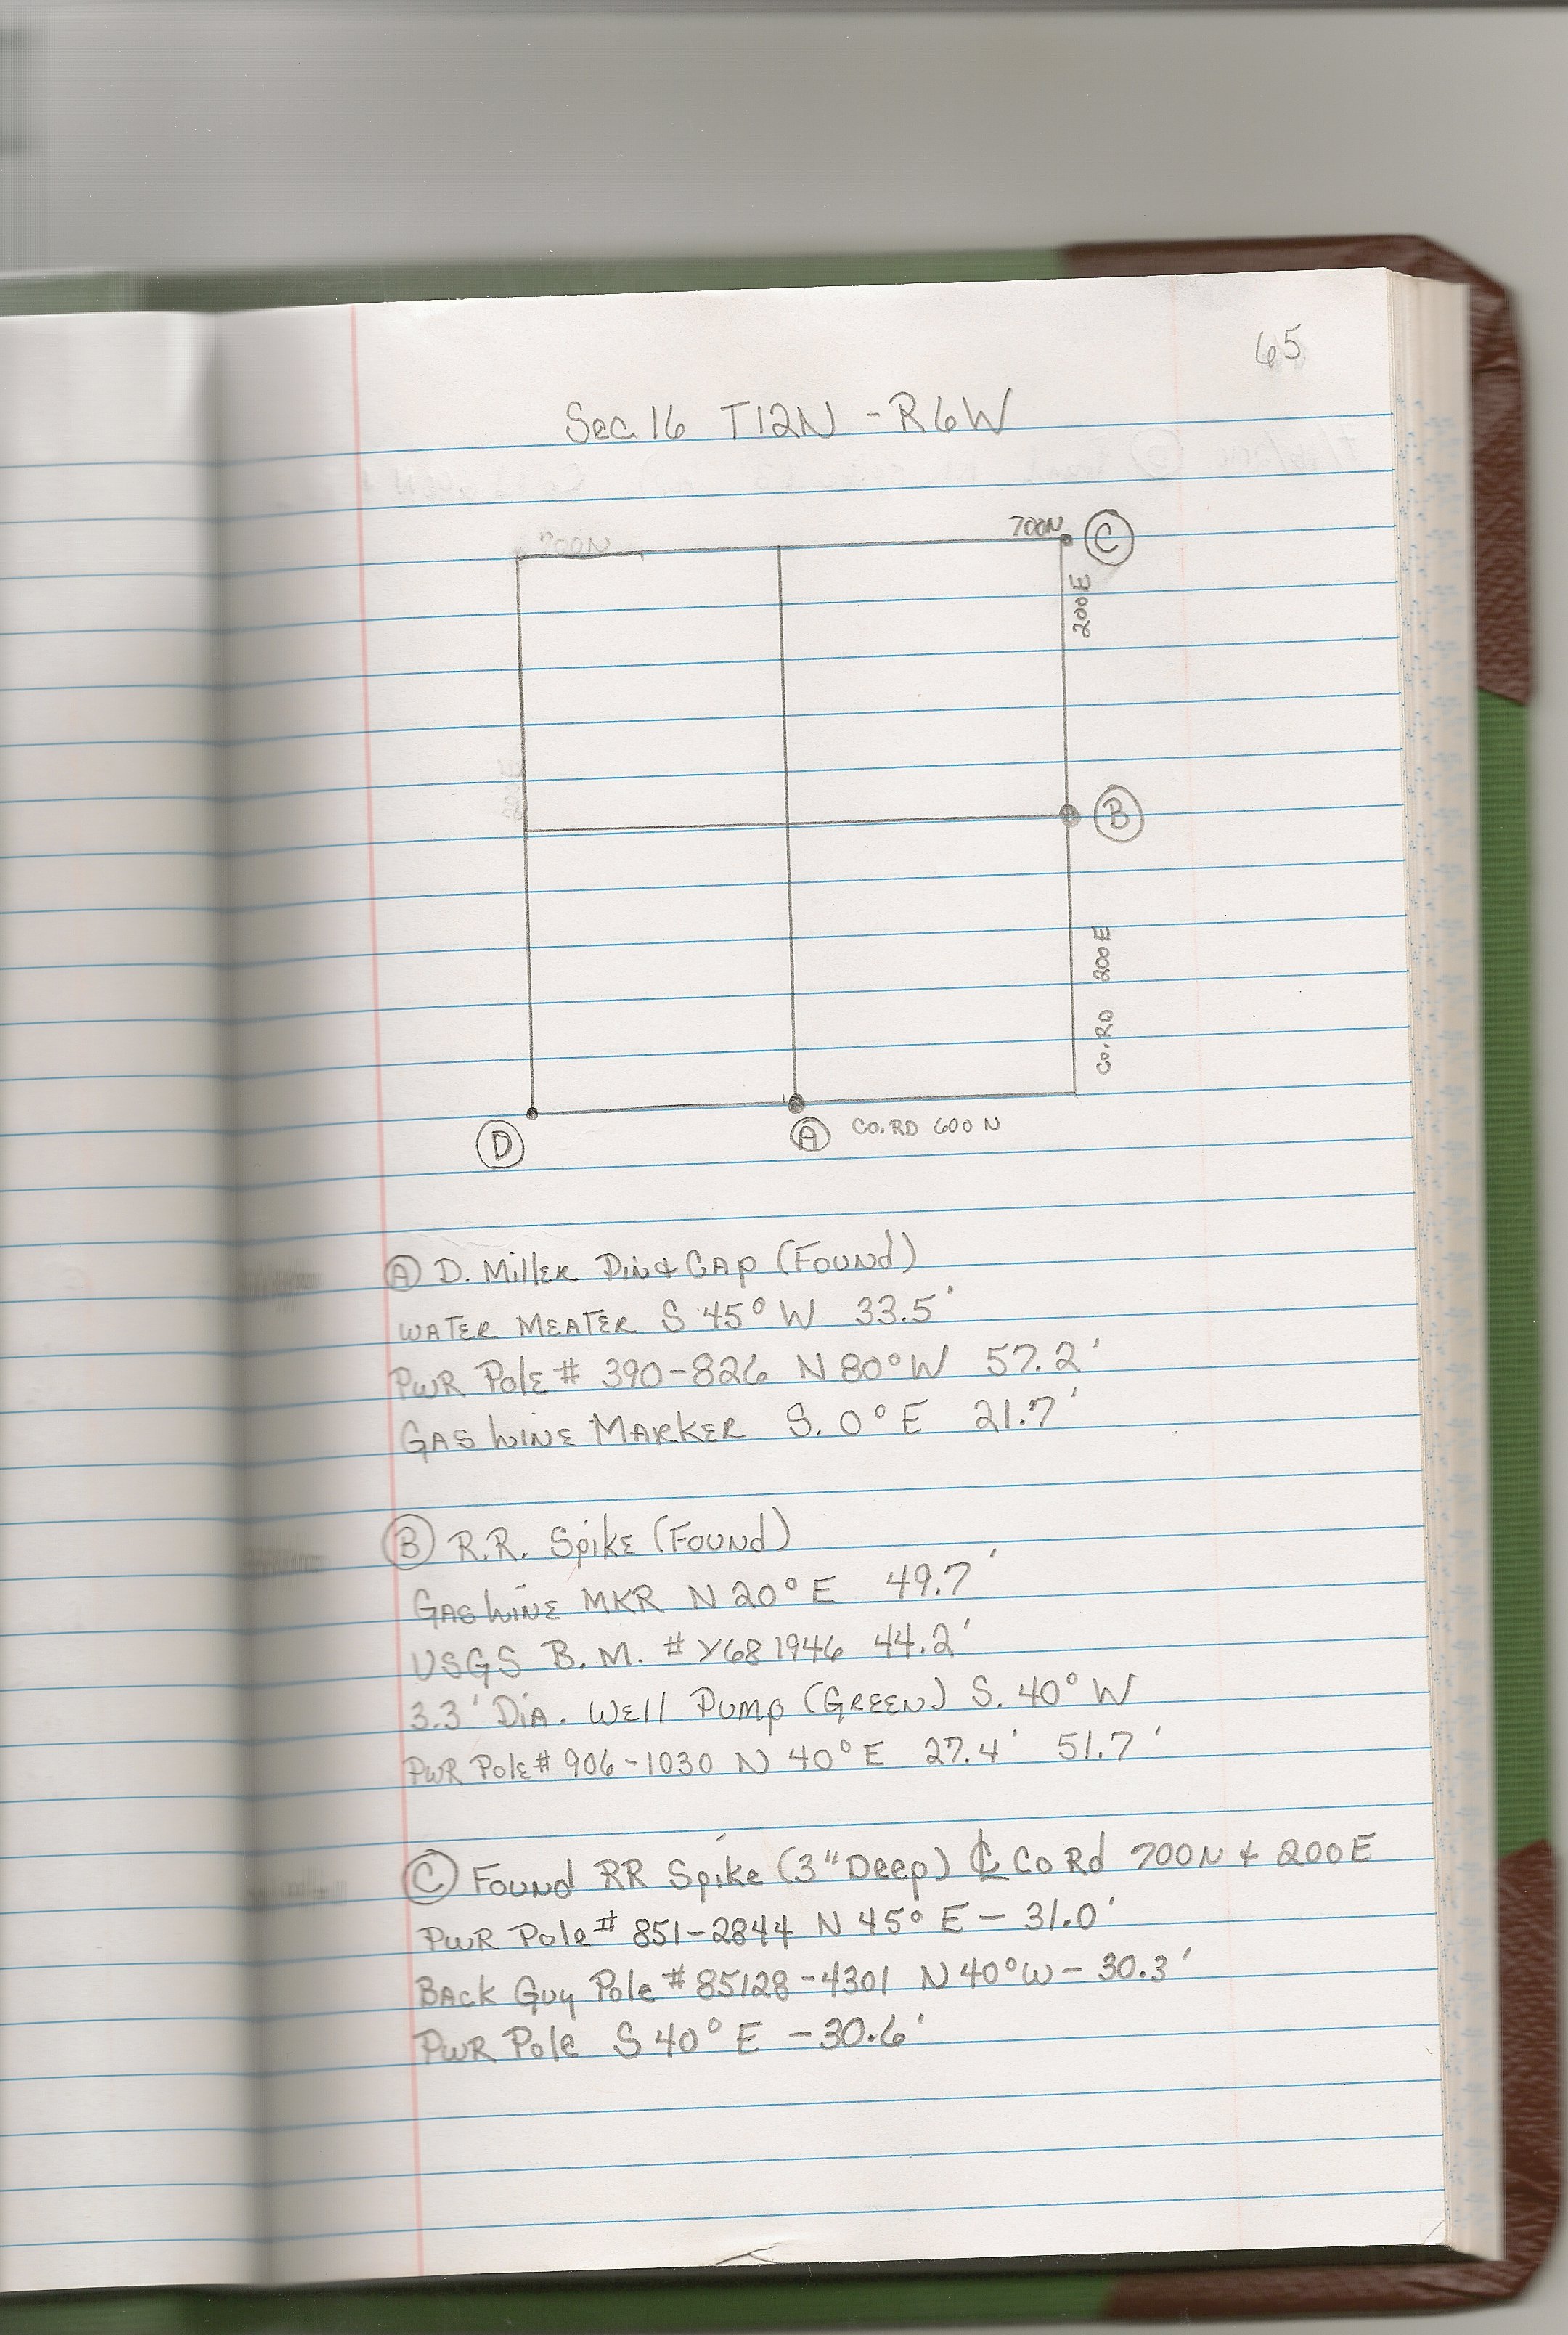 65
Sec. 16 T12N - R6W
700N
700N
C
200E
B
CO. RD 200E
D
A
CO. RD 600 N
A D. MillER Pin & CAP (FOUND)
WATER MEATER S 45° W 33.5'
PWR PolE # 390-826 N 80° W 57.2'
GAS LINE MARKER S. 0° E 21.7'
B R.R. SpikE (FOUND)
GAS LINE MKR N 20° E 49.7'
USGS B.M. # Y68 1946 44.2'
3.3' DiA. WEll Pump (GREEN) S. 40° W
PWR PolE # 906-1030 N 40° E 27.4' 51.7'
C FOUND RR Spike (3" Deep) ℄ Co Rd 700N & 200E
PWR Pole # 851-2844 N 45° E - 31.0'
BACK Guy Pole # 85128-4301 N 40° W - 30.3'
PWR Pole S 40° E - 30.6'